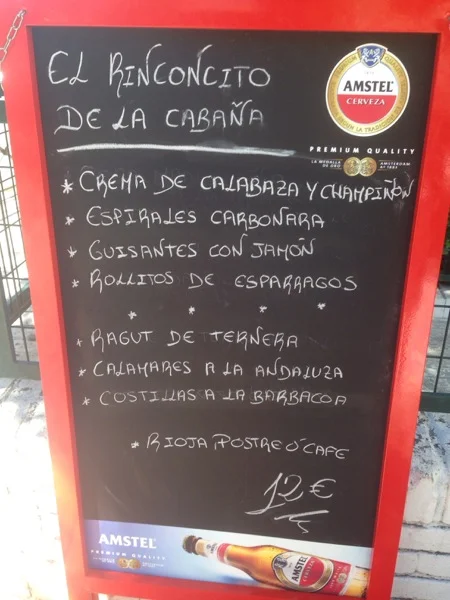 EL RINCONCITO
DE LA CABAÑA
AMSTEL
CERVEZA
PREMIUM QUALITY
* CREMA DE CALABAZA Y CHAMPIÑÓN
* ESPIRALES CARBONARA
* GUISANTES CON JAMÓN
* ROLLITOS DE ESPARRAGOS
* * * *
* RAGUT DE TERNERA
* CALAMARES A LA ANDALUZA
* COSTILLAS A LA BARBACOA
* RIOJA, POSTRE Ó CAFE
12 €
AMSTEL
PREMIUM QUALITY
AMSTEL